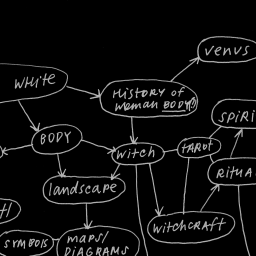 venus
WHITE
HISTORY OF
WOMAN BODY
SPIRI
BODY
WITCH
TAROT
RITUA
landscape
WITCHCRAFT
SYMBOLS
MAPS/
DIAGRAMS